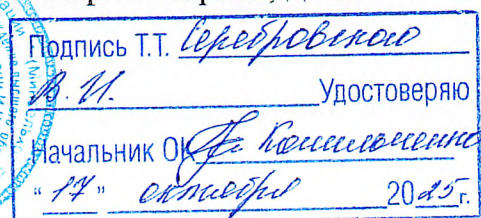 Подпись Т.Т. Серебровского
В. И. Удостоверяю
Начальник ОК
"17" октября 2025 г.